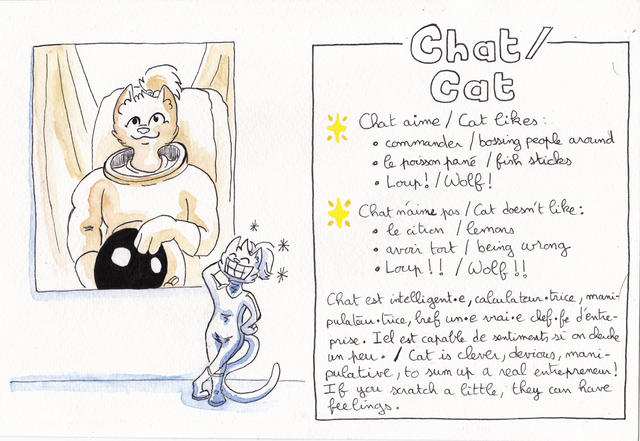 Chat/
Cat
Chat aime / Cat likes:
• commander / bossing people around
• le poisson pané / fish sticks
• Loup! / Wolf!
Chat n'aime pas / Cat doesn't like:
• le citron / lemons
• avoir tort / being wrong
• Loup!! / Wolf!!
Chat est intelligent•e, calculateur•trice, mani-
pulateur•trice, bref un•e vrai•e chef•fe d'entre-
prise. Iel est capable de sentiments si on cherche
un peu. / Cat is clever, devious, mani-
pulative, to sum up a real entrepreneur!
If you scratch a little, they can have
feelings.